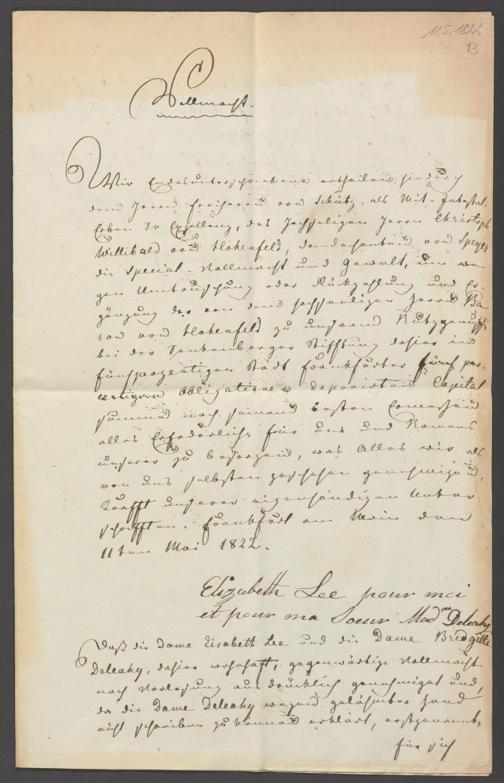 11.5.1822
13
Vollmacht.
Wir Endesunterschriebene ertheilen hiedurch
dem Herrn Freiherrn von Schütz, als Mit-Intestat-
Erben Sr Exzellenz, des Hochseligen Herrn Christoph
Willibald von Hohenfeld, Domdechanten von Speyer
die Special-Vollmacht und Gewalt, um we-
gen Umtauschung oder Rückzahlung und Er-
gänzung der von dem hochseeligen Herrn Ba-
ron von Hohenfeld zu unserm Nutzgenuß
bei der Senkenberger Stifftung dahier in
fünfprozentigen Stadt Frankfurter fünf pro-
centigen Obligationen deponirten Capital
summe nach seinem besten Ermessen
alles Erforderliche für uns und Namens
unserer zu besorgen, was Alles wir als
von uns selbsten geschehen genehmigen,
Krafft unserer eigenhändigen Unter
schrifften. Frankfurt am Main den
11ten Mai 1822.
Elizabeth Lee pour moi
et pour ma Soeur Madme Deleahy
Daß die Dame Elisabeth Lee und die Dame
Deleahy, dahier wohnhaft, gegenwärtige Vollmacht
nach Vorlesung ausdrücklich genehmiget und,
da die Dame Deleahy wegen gelähmter Hand
nicht schreiben zu können erklärt, erstgenannte
für sich